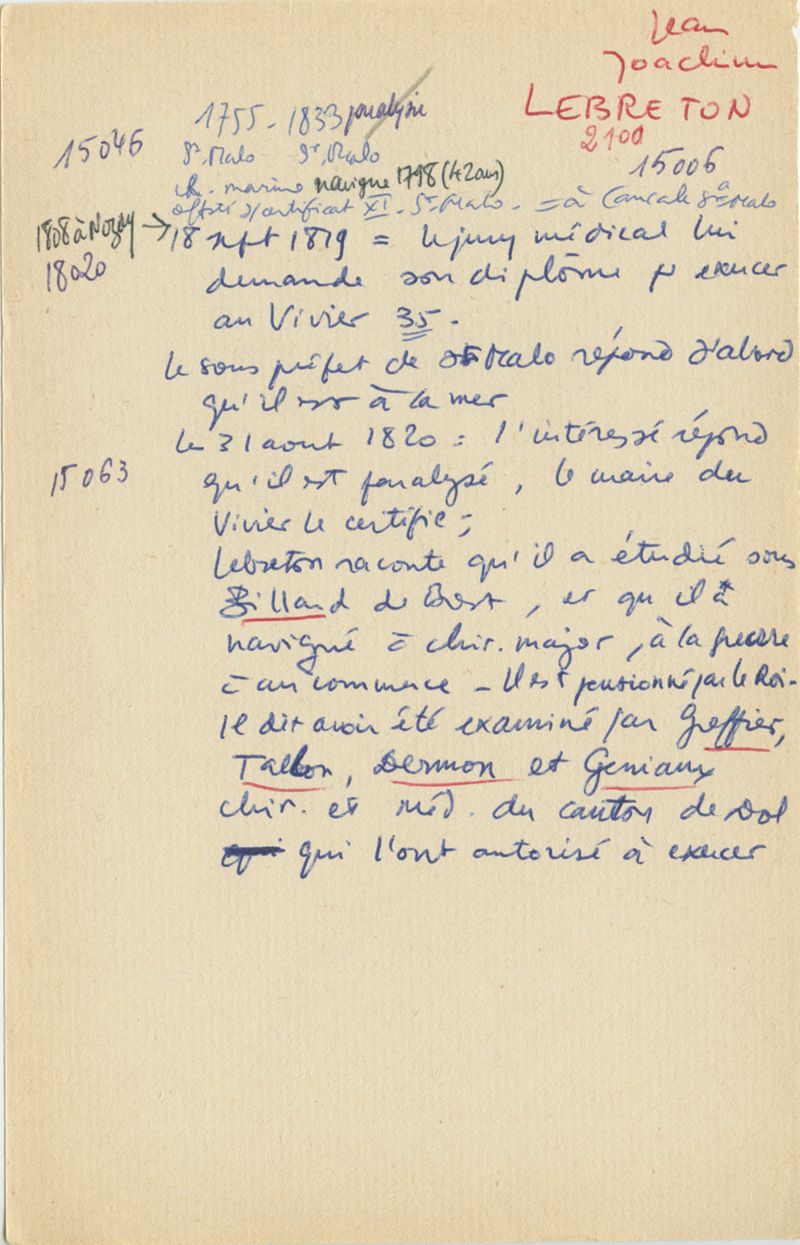 Jean
Joachim
LEBRETON
2100
1755 - 1833 paralysie
15046
St. Malo St. Malo
15006
ch. marine navigue 1798 (42 ans)
certificat XI - St-Malo - = à Cancale St-Malo
1808 à Nozay →
18 sept 1819 = le jury médical lui
18020
demande son diplôme pr exercer
au Vivier 35 -
le sous préfet de St Malo répond d'abord
qu'il est à la mer
le 31 aout 1820 = l'intéressé répond
15063
qu'il est paralysé, le maire du
Vivier le certifie ;
Lebreton raconte qu'il a étudié sous
Billard de Brest, et qu il a
navigué = chir. major, à la guerre
= au commerce - Il est pensionné par le Roi -
Il dit avoir été examiné par Greffier,
Tallon, Dermon et Geniaux
chir. et méd. du canton de Dol
qui l'ont autorisé à exercer